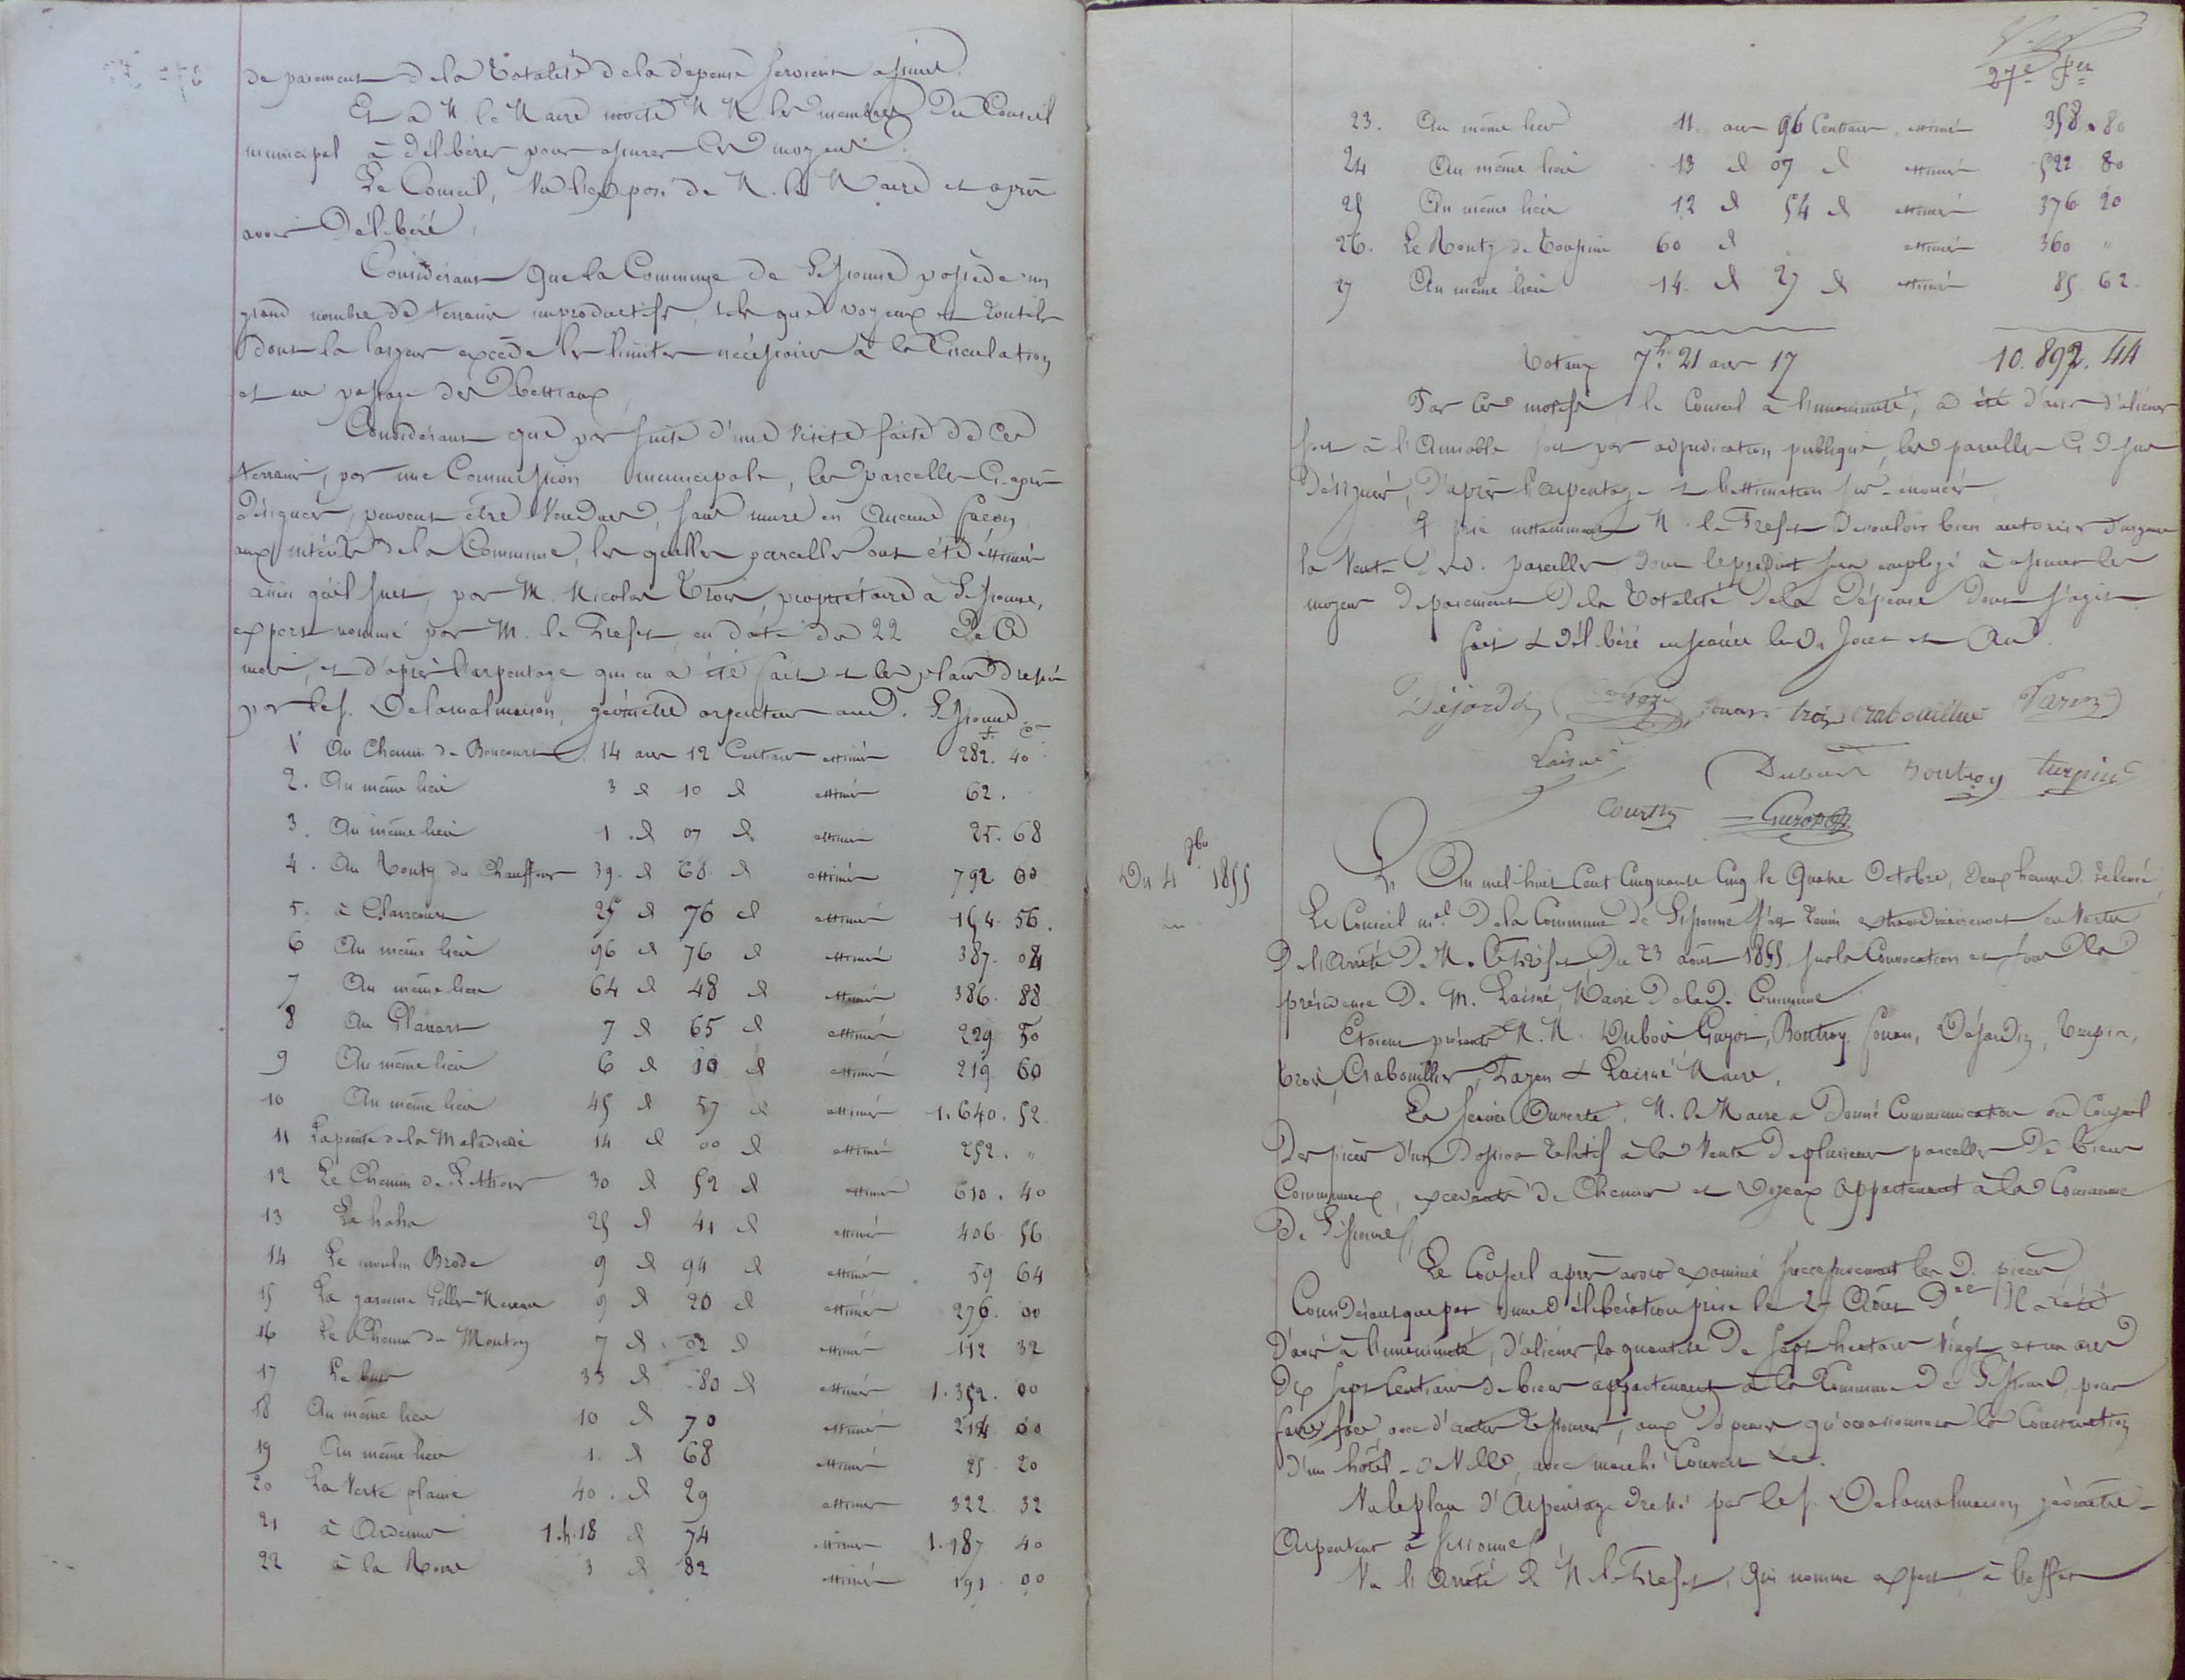 de paiement de la Totalité de la dépense seroient assurés.
Et a M. le Maire invité M. M. les membres du Conseil
municipal à délibérer pour assurer ces moyens.
Le Conseil, Vu l'exposé de M. le Maire et après
avoir Délibéré,
Considérant que la Commune de Sissonne possède un
grand nombre de terrains improductifs, tels que voyeux et
dont la largeur excède les limites nécessaires à la Circulation
et au passage des Bestiaux,
Considérant que par suite d'une visite faite de ces
terrains, par une Commission municipale, les parcelles Ci-après
Désignées, peuvent être Vendues, sans nuire en Aucune façon
aux intérêts de la Commune, lesquelles parcelles ont été estimées
ainsi qu'il suit, par M. Nicolas Trois, propriétaire à Sissonne,
expert nommé par M. le Préfet, en date du 22 De Ce
mois, et d'après l'arpentage qui en a été fait et les plans dressés
par le s. Delamalmaison, géomètre arpenteur aud. Sissonne.
f. c.
1 Au Chemin de Boncourt 14 ares 12 Centiares estimés 282. 40
2. Au même lieu 3 d 10 d estimés 62.
3. Au même lieu 1. d 07 d estimés 25. 68
4. Au Routy du Chauffour 39. d 60 d estimés 792 00
5. à Clanrcourt 25 d 76 d estimés 154. 56.
6 Au même lieu 96 d 76 d estimés 387. 04
7 Au même lieu 64 d 48 d estimés 386. 88
8 Au 7 d 65 d estimés 229 50
9 Au même lieu 6 d 10 d estimés 219 60
10 Au même lieu 45 d 57 d estimés 1.640. 52
11 La pointe de la Maladrerie 14 d 00 d estimés 252. "
12 Le Chemin de 30 d 52 d estimés 610. 40
13 Le haha 25 d 41 d estimés 406 56
14 Le moulin Brode 9 d 94 d estimés 59 64
15 La garenne Gilles 9 d 20 d estimés 276. 00
16 Le Chemin du Moutoy 7 d 02 d estimés 112 32
17 Le 33 d 80 d estimés 1.352. 00
18 Au même lieu 10 d 70 estimés 214 00
19 Au même lieu 1. d 68 estimés 25 20
20 La Verte plaine 40. d 29 estimés 322 32
21 à Ardennes 1.h.18 d 74 estimés 1.187 40
22 à la 3 d 82 estimés 191. 00
27e fer
23. Au même lieu 11. ares 96 Centiares, estimés 358. 80
24 Au même lieu 13 d 07 d estimés 522 80
25 Au même lieu 12 d 54 d estimés 376 20
26. Le Routy de Toupine 60 d estimés 360 "
27 Au même lieu 14. d 27 d estimés 85 62.
Totaux 7h. 21 ares 17 10.892. 44
Par Ces motifs, le Conseil à l'unanimité, a été d'avis d'aliéner
soit à l'Amiable soit par adjudication publique, les parcelles Ci-dessus
Désignées, D'après l'Arpentage et l'estimation sus-énoncés,
Et prie instamment M. le Préfet De vouloir bien autoriser d'urgence
la Vente des d. parcelles dont le produit sera employé à assurer les
moyens de paiement de la Totalité de la Dépense dont s'agit.
fait & Délibéré en séance lesd. Jour et An.
Déjardin fouan. troix Crabouillier Parin
Laisné Dubois Boutroy turpin
Courtin Guyot
Du 4 8bre 1855
L'An mil huit Cent Cinquante Cinq le Quatre Octobre, deux heures de relevée,
Le Conseil mal. De la Commune de Sissonne s'est réuni extraordinairement en Vertu
De l'Arrêté De M. le Préfet Du 23 août 1855 sur la Convocation et sous la
présidence De M. Laisné, Maire De lad. Commune
Etoient présents M. M. Dubois Guyot, Boutroy, fouan, Déjardin, Turpin,
Troix, Crabouillier, Payen & Laisné Maire,
La Séance Ouverte, M. le Maire a Donné Communication au Conseil
Des pièces d'un Dossier Relatif à la Vente De plusieurs parcelles De biens
Communaux, excédants de Chemins et Voyeux Appartenant à la Commune
De Sissonne,
Le Conseil après avoir examiné successivement les d. pièces,
Considérant que par une délibération prise le 27 Août Dier Il a été
D'avis à l'unanimité, d'aliéner, la quantité De Sept hectares Vingt et un ares
Dix sept Centiares de biens appartenant à la Commune de Sissonne, pour
faire face, avec d'autres ressources, aux Dépenses qu'occasionnera la Construction
d'un hôtel-de Ville, avec marché Couvert &a.
Vu le plan d'Arpentage dressé par le s. Delamalmaison, géomètre-
Arpenteur à Sissonne,
Vu l'Arrêté de M. le Préfet, Qui nomme expert à l'effet